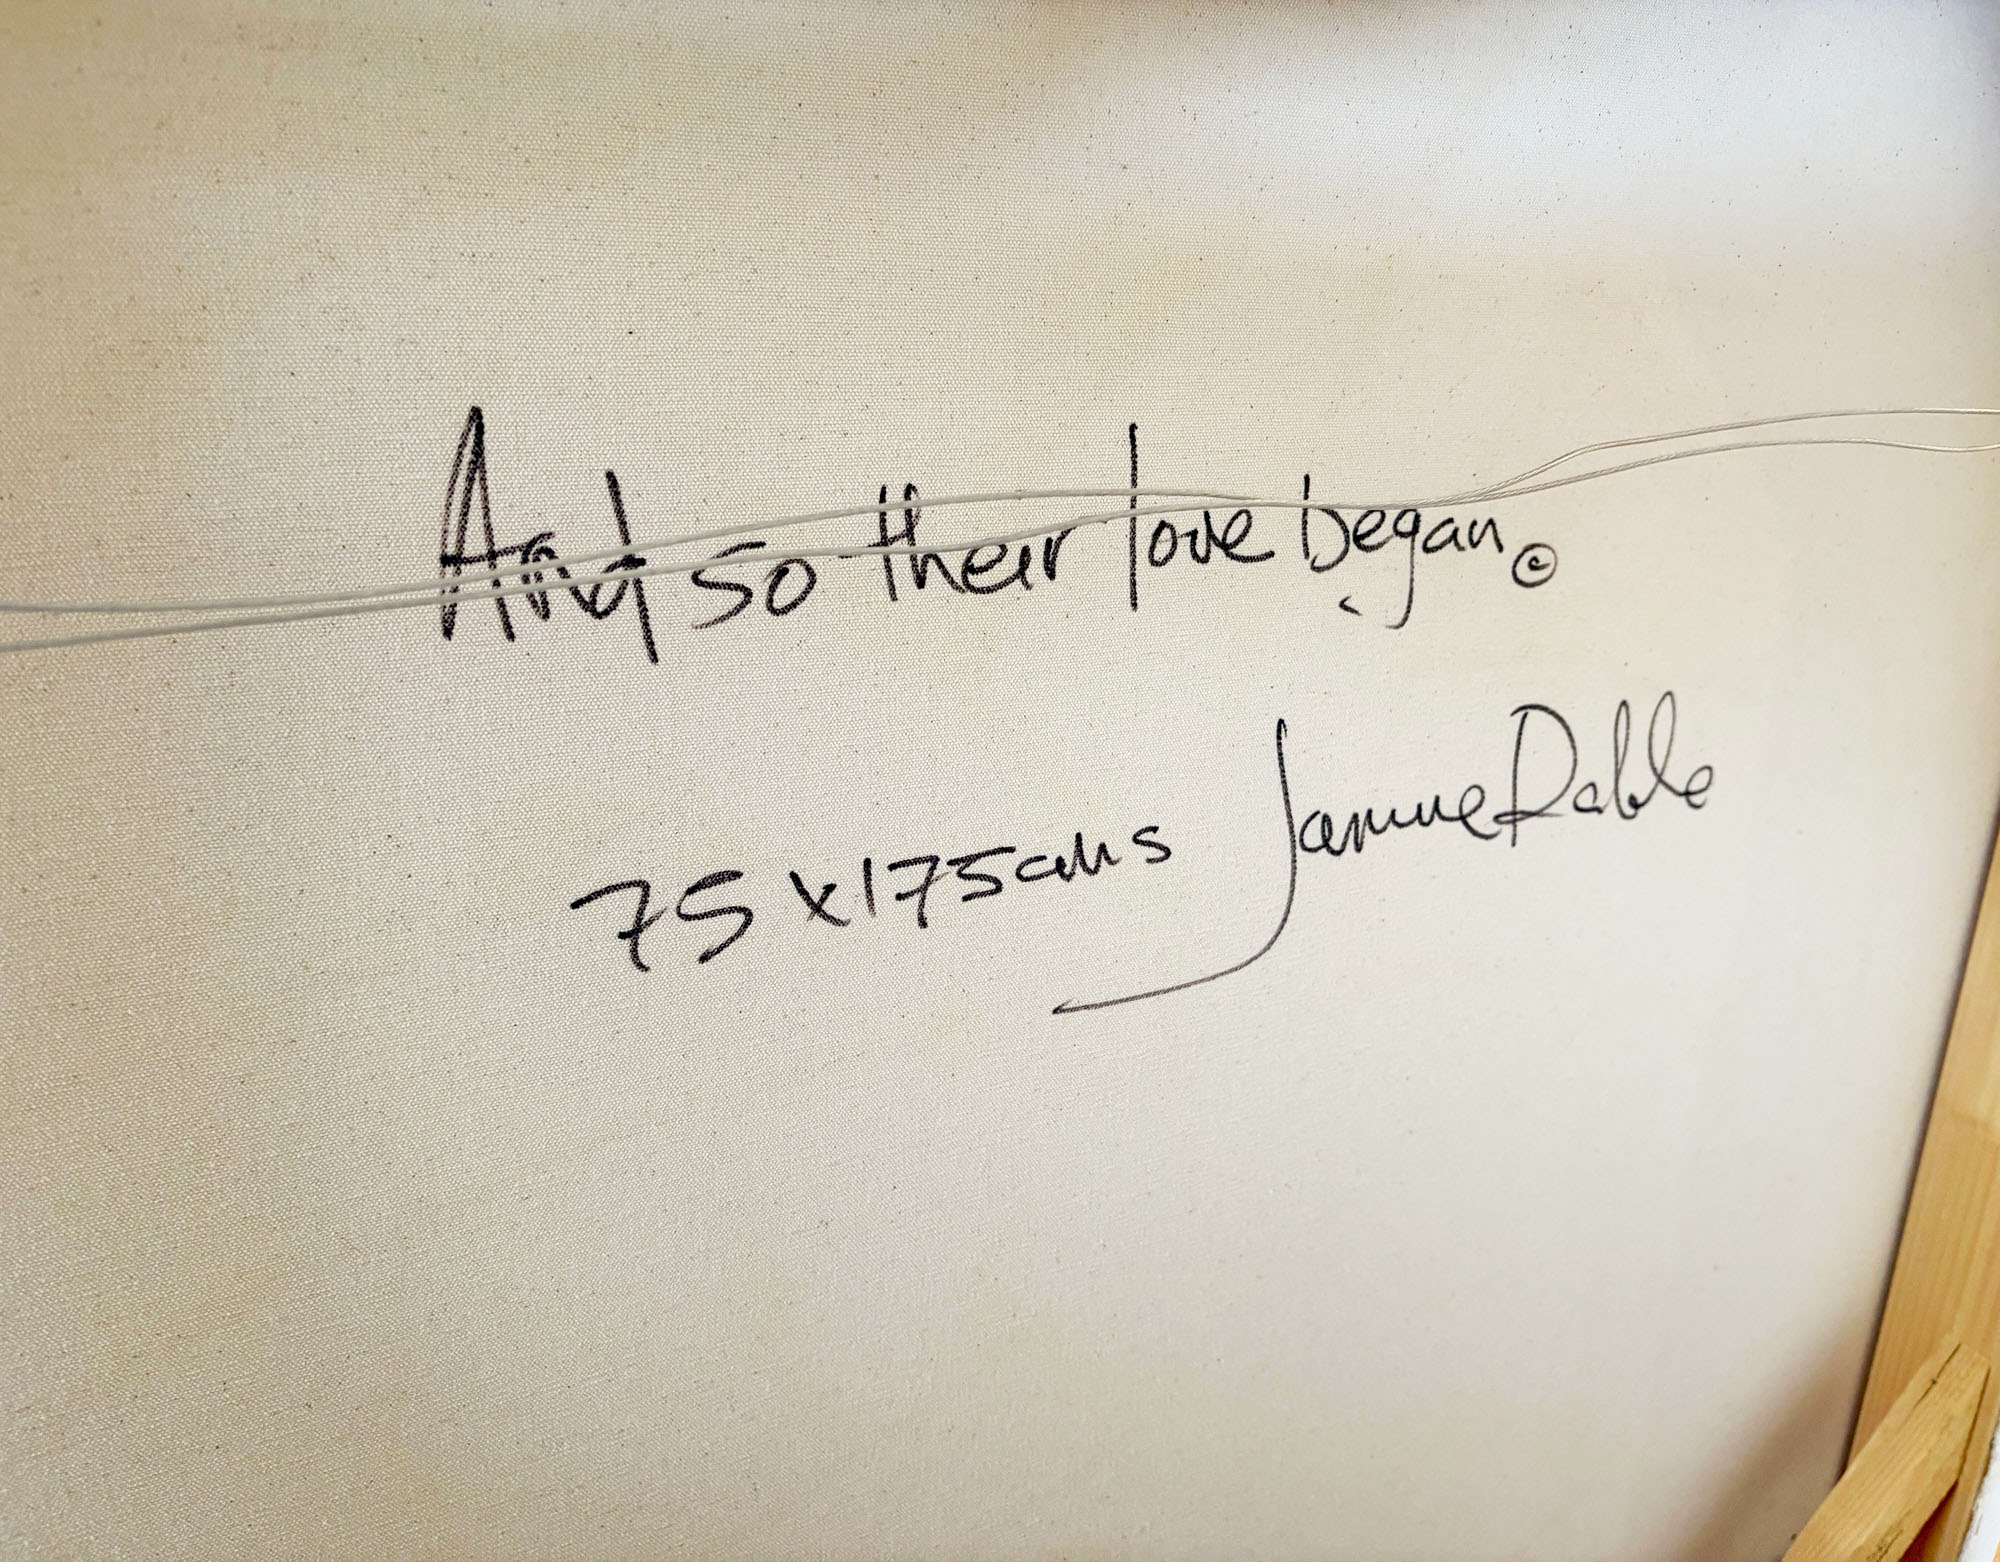 And so their love began ©
75 x 175 cms Janine Dable